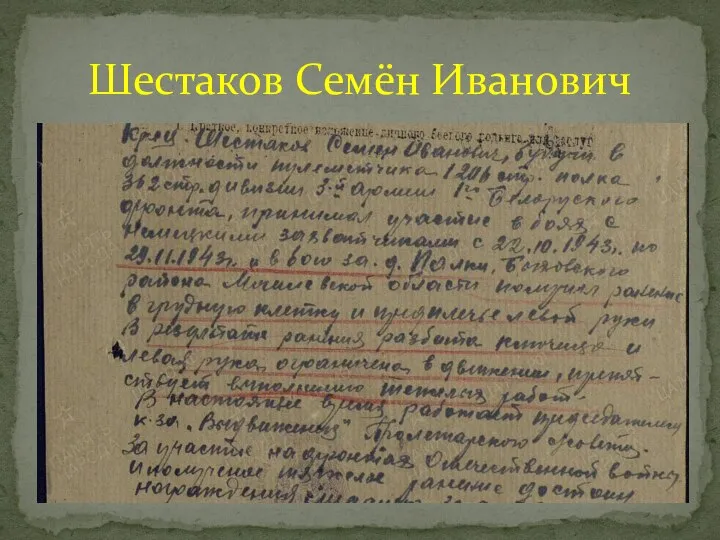 Шестаков Семён Иванович
1. Краткое, конкретное изложение личного боевого подвига или заслуг
Кр-ец. Шестаков Семен Иванович, будучи в
должности пулеметчика 1206 стр. полка
362 стр. дивизии 3-й армии 1го Белорусского
фронта, принимал участие в боях с
немецкими захватчиками с 22.10.1943г. по
29.11.1943г. и в бою за д. Палки,
района Могилевской области получил ранение
в грудную клетку и предплечье левой руки
В результате ранения разбита ключица и
левая рука ограничена в движении, препят-
ствует выполнению тяжелых работ.
В настоящее время работает председателем
к-за „Выдвиженец" Пролетарского с/совета.
За участие на фронтах Отечественной войны
и полученое тяжелое ранение достоин
награждения